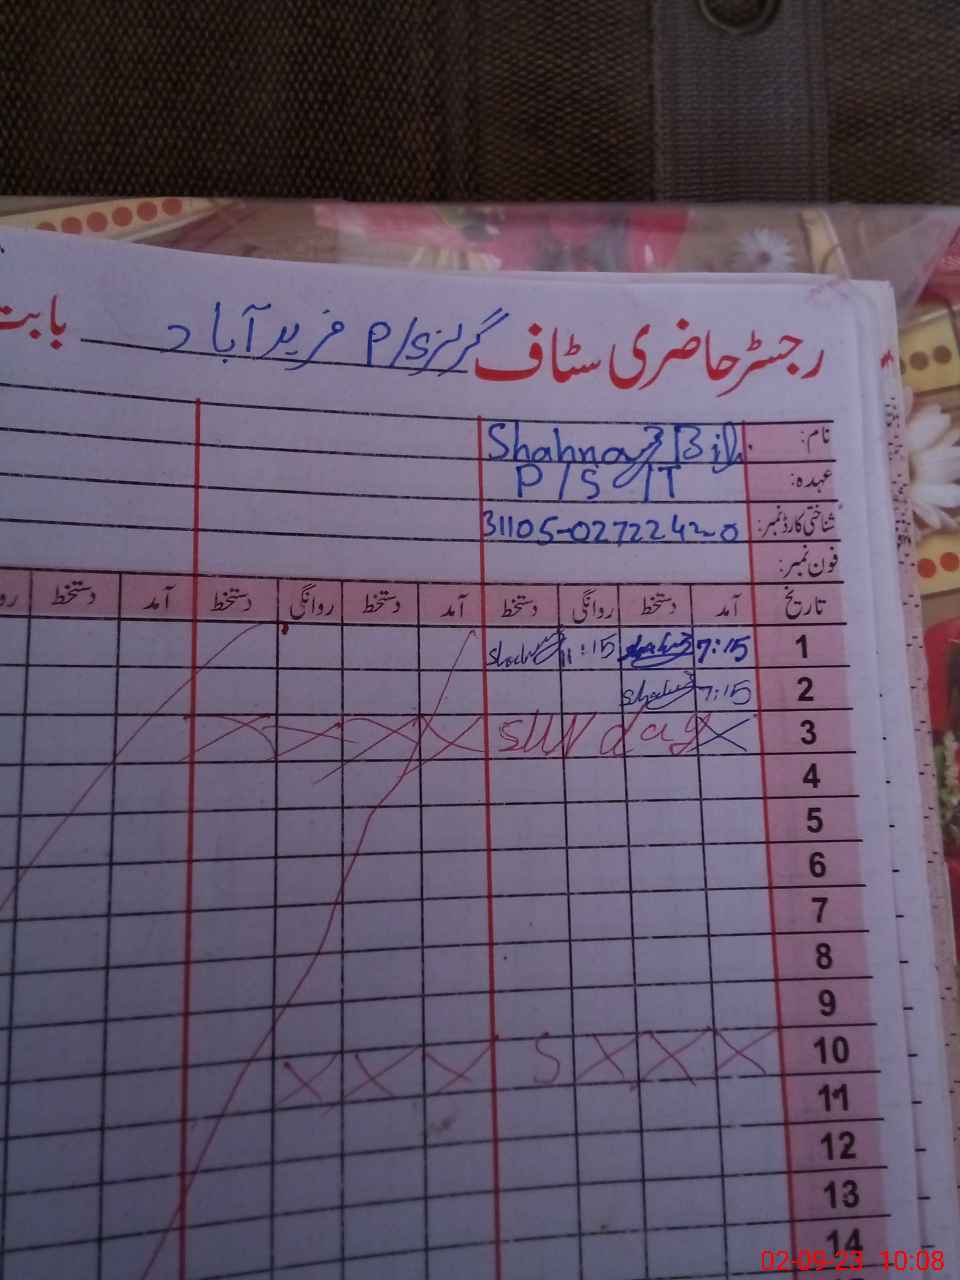 رجسٹر حاضری سٹاف گرلز P/S فرید آباد بابت
نام: Shahnaz Bibi
عہدہ: P/S/T
شناختی کارڈ نمبر: 31105-0272242-0
فون نمبر:
تاریخ آمد دستخط روانگی دستخط آمد دستخط روانگی دستخط آمد دستخط
1 7:15 Shahnaz 11:15 Shahnaz
2 7:15 Shahnaz
3 SUNday
4
5
6
7
8
9
10 S
11
12
13
14
02-09-23 10:08